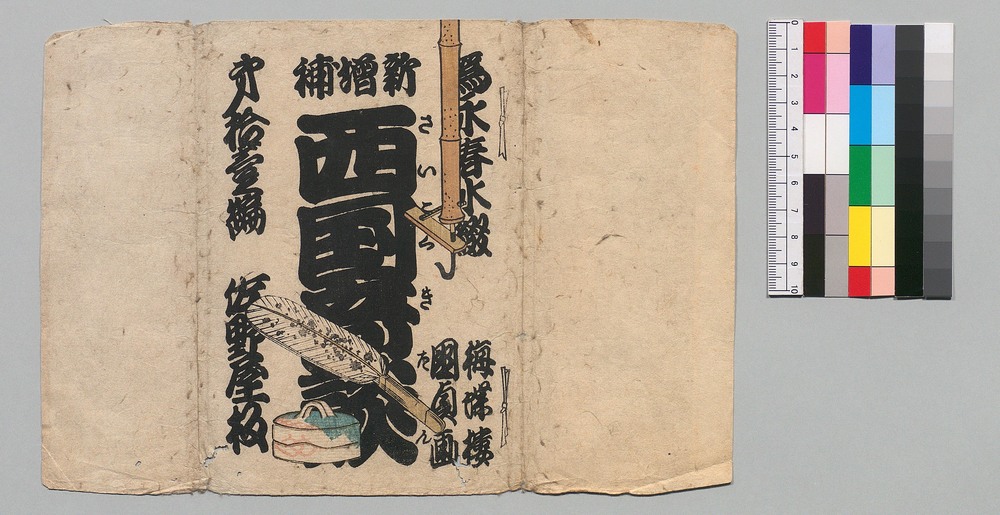 為永春水綴
梅蝶樓
國貞画
新增補
西国奇談
さいこくきだん
才拾壹編
佐野屋板
0 1 2 3 4 5 6 7 8 9 10